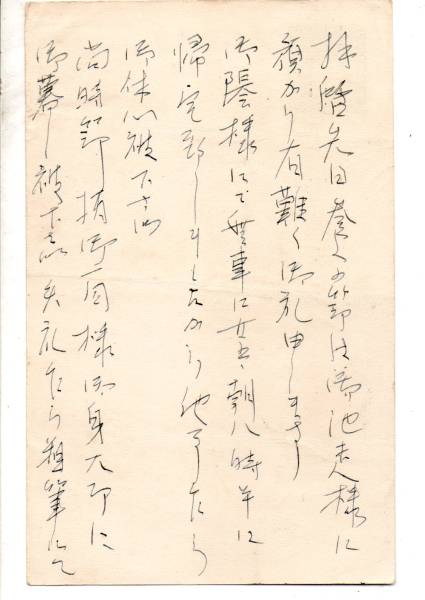 拝啓先日参上の節は御馳走様に
預かり有難く御礼申します
御蔭様にて無事に 朝八時半に
帰宅致しましたから他事ながら
御休心被下さい
尚時節柄御一同様御身大切に
御暮し被下さい失礼ながら粗筆にて